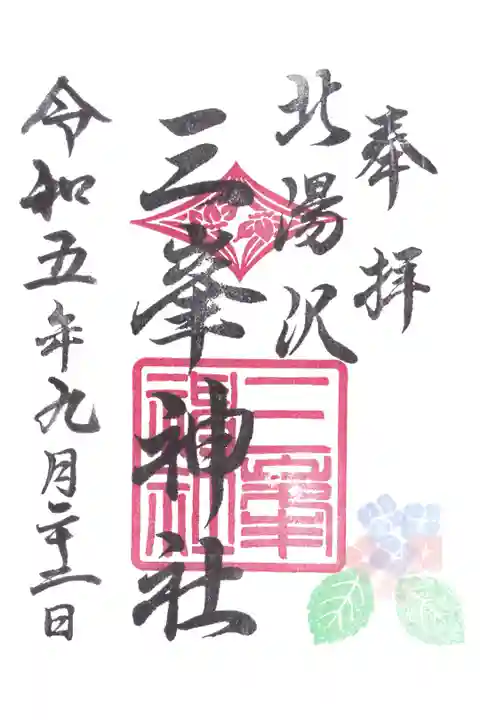 奉拝
北湯沢
三峯神社
三峯神社
令和五年九月二十二日